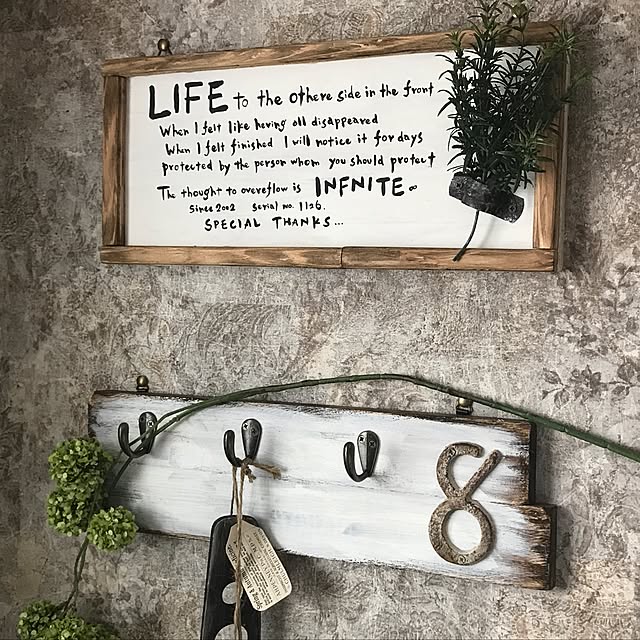 LIFE to the othere side in the front
When I felt like having all disappeared
When I felt finished I will notice it for days
protected by the person whom you should protect
The thought to overeflow is INFNITE∞
Since 2002 Serial no. 1126.
SPECIAL THANKS...
8